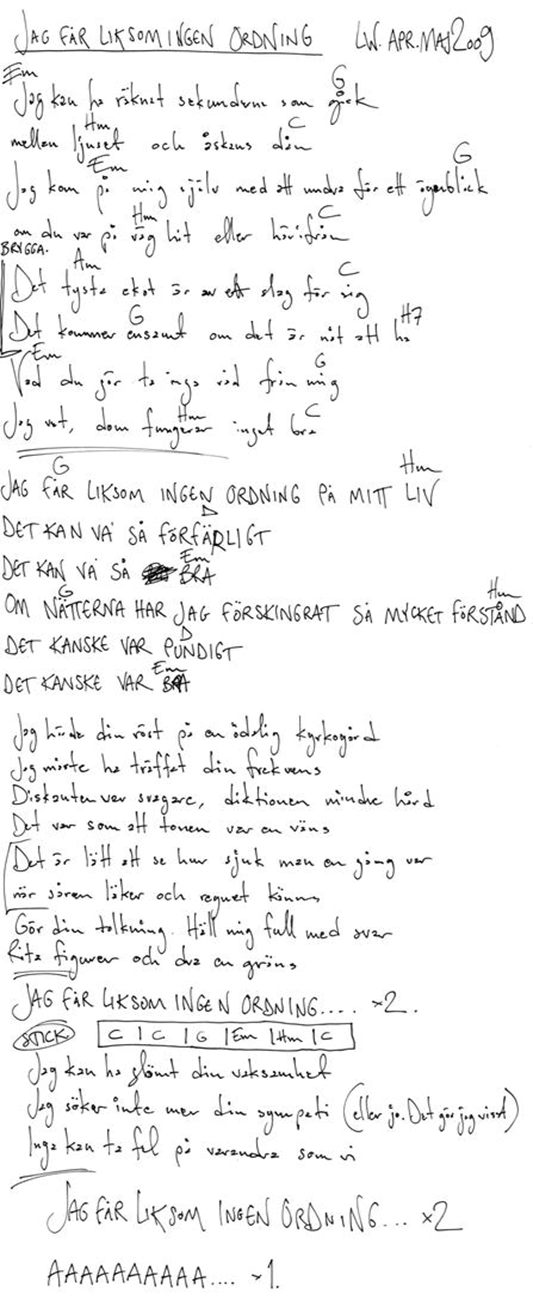 JAG FÅR LIKSOM INGEN ORDNING LW. APR. MAJ 2009
Em G
Jag kan ha räknat sekunderna som gick
Hm C
mellan ljuset och åskans dån
Em G
Jag kom på mig själv med att undra för ett ögonblick
Hm C
om du var på väg hit eller härifrån
BRYGGA.
Am C
Det tysta ekot är av ett slag för sig
G H7
Det kommer ensamt om det är nåt att ha
Em G
Vad du gör ta inga råd från mig
Hm C
Jag vet, dom fungerar inget bra
G Hm
JAG FÅR LIKSOM INGEN ORDNING PÅ MITT LIV
D
DET KAN VA' SÅ FÖRFÄRLIGT
Em
DET KAN VA' SÅ BRA
G Hm
OM NÄTTERNA HAR JAG FÖRSKINGRAT SÅ MYCKET FÖRSTÅND
D
DET KANSKE VAR PUNDIGT
Em
DET KANSKE VAR BRA
Jag hörde din röst på en ödslig kyrkogård
Jag måste ha träffat din frekvens
Diskanten var svagare, diktionen mindre hård
Det var som att tonen var en väns
Det är lätt att se hur sjuk man en gång var
när såren läker och regnet känns
Gör din tolkning. Häll mig full med svar
Rita figurer och dra en gräns
JAG FÅR LIKSOM INGEN ORDNING.... ×2.
STICK C | C | G | Em | Hm | C
Jag kan ha glömt din vaksamhet
Jag söker inte mer din sympati (eller jo. Det gör jag visst)
Inga kan ta fel på varandra som vi
JAG FÅR LIKSOM INGEN ORDNING... ×2
AAAAAAAAAA.... ×1.